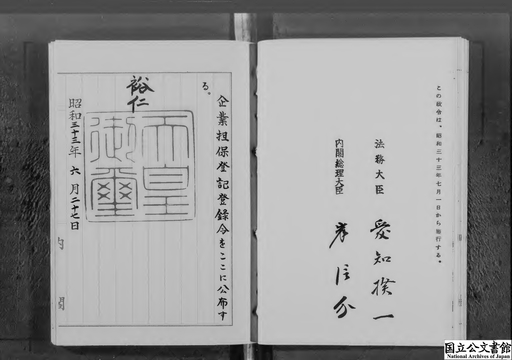 この政令は、昭和三十三年七月一日から施行する。
法務大臣 愛知揆一
内閣総理大臣 岸信介
企業担保登記登録令をここに公布す
る。
裕仁
天皇
御璽
昭和三十三年六月二十七日
国立公文書館
National Archives of Japan